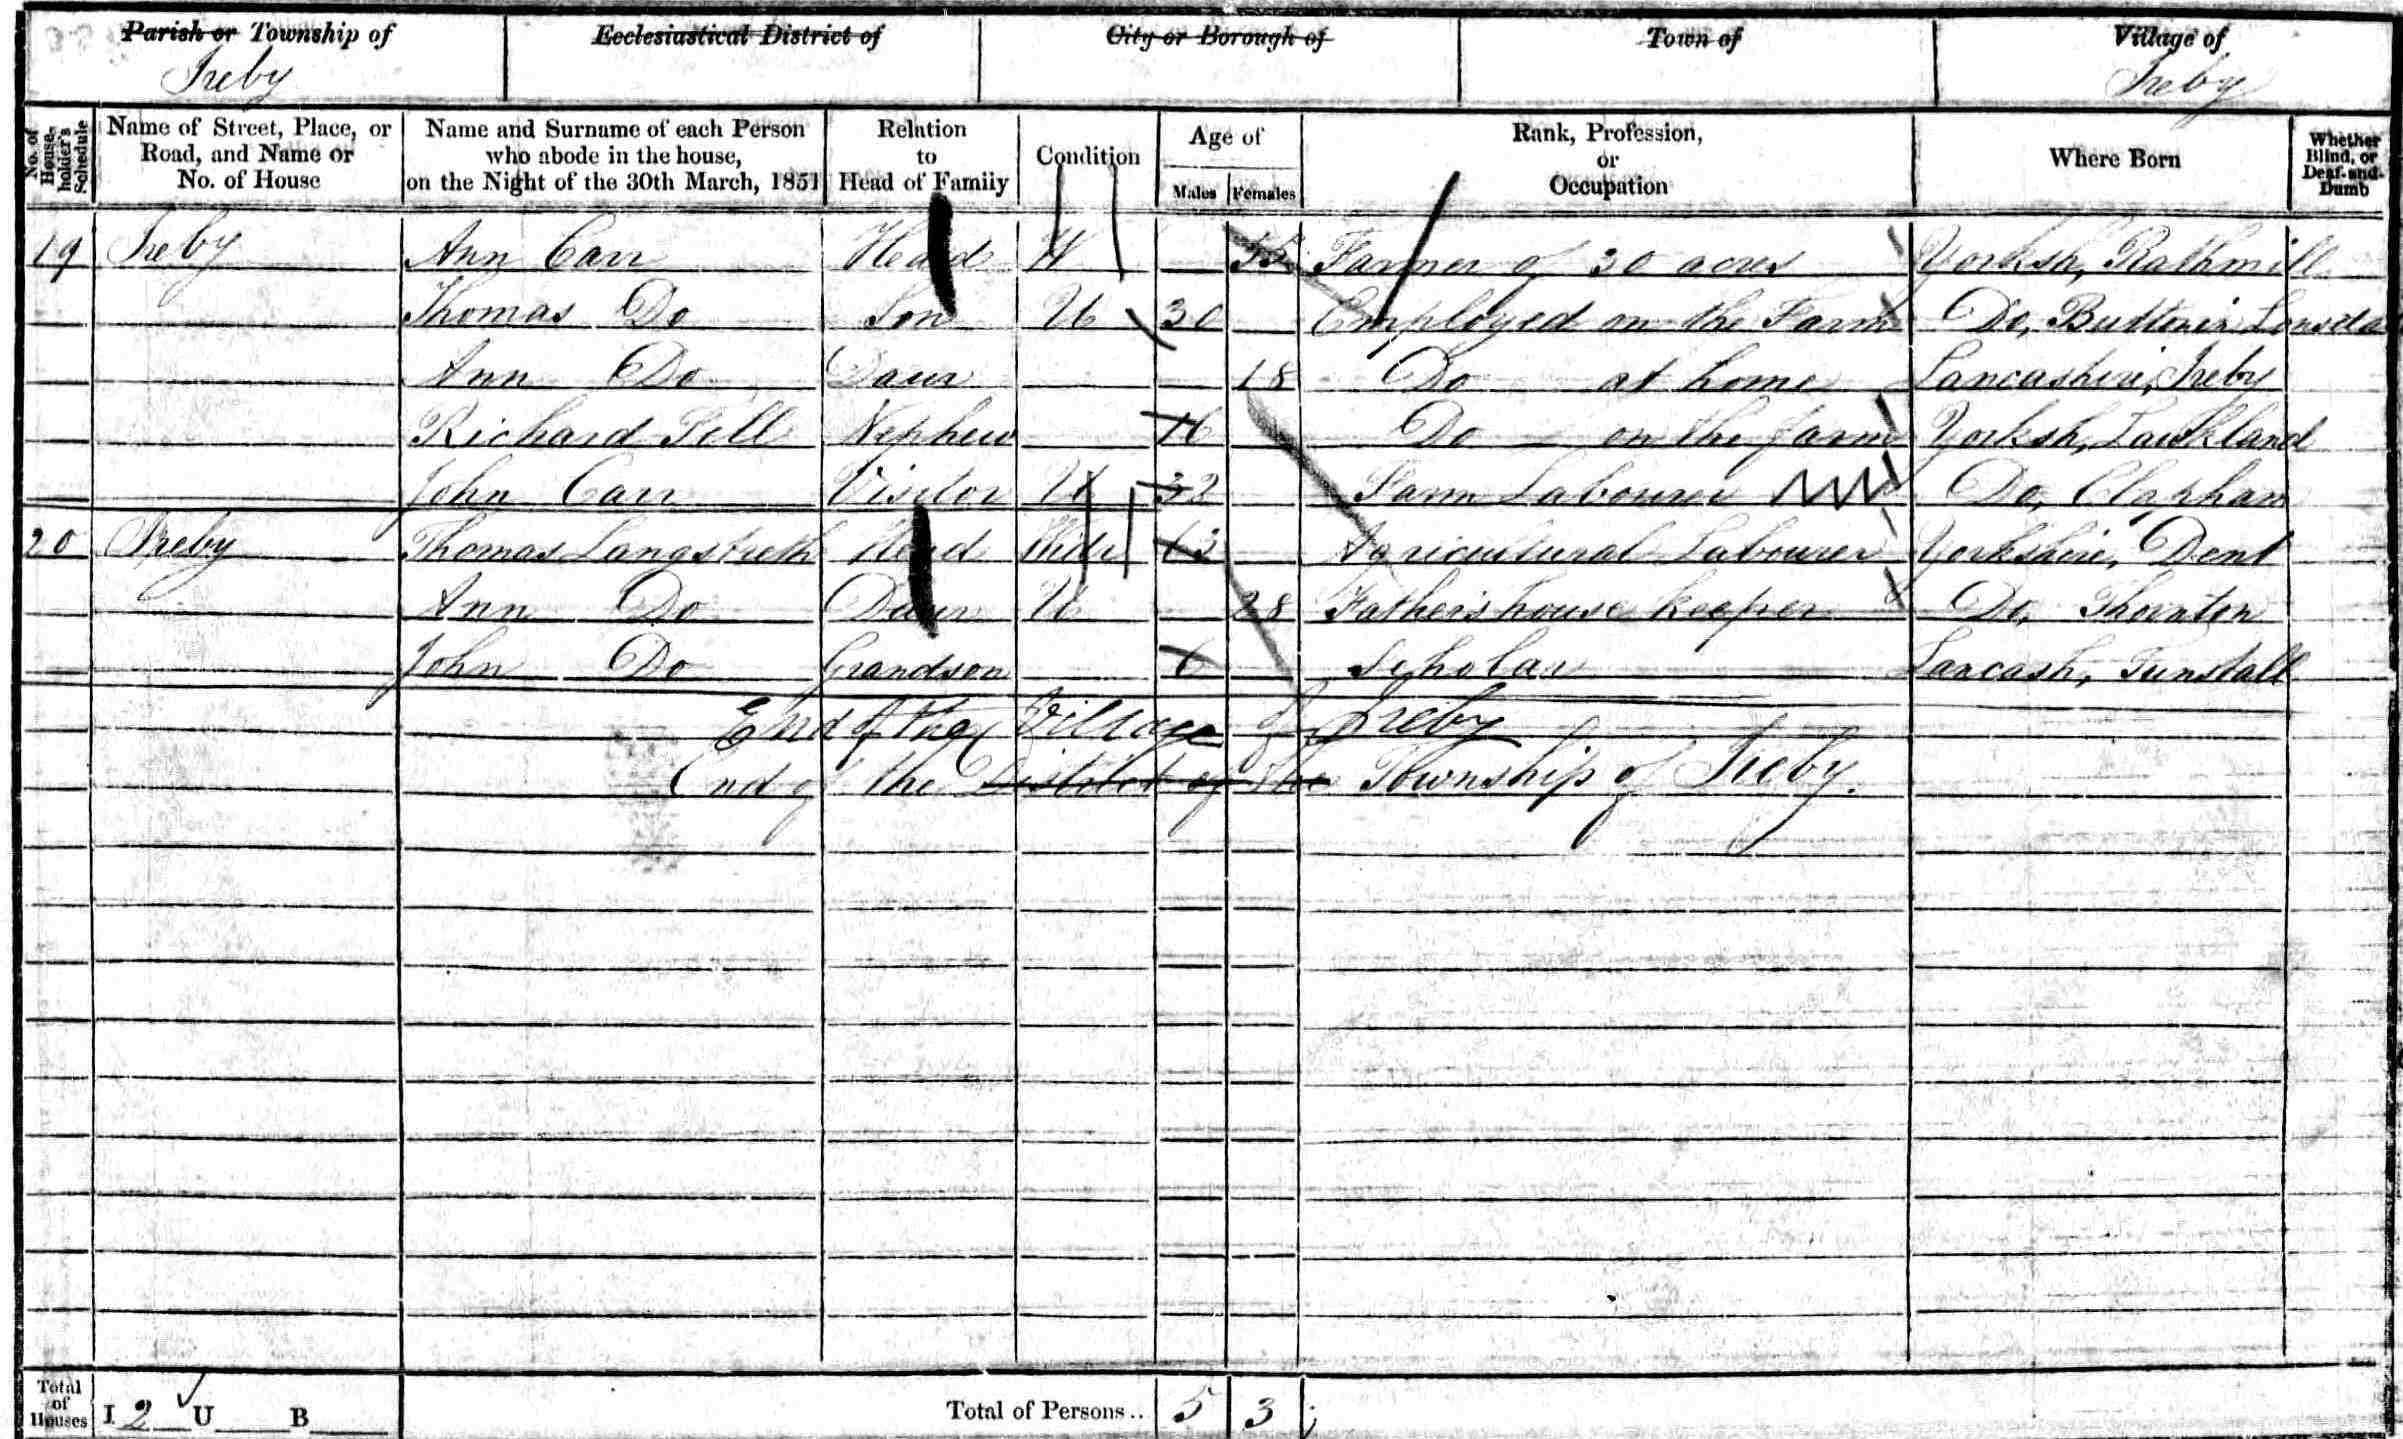 Parish or Township of Ecclesiastical District of City or Borough of Town of Village of
Ireby Ireby
No. of House-holder's Schedule Name of Street, Place, or Road, and Name or No. of House Name and Surname of each Person who abode in the house, on the Night of the 30th March, 1851 Relation to Head of Family Condition Age of Males Females Rank, Profession, or Occupation Where Born Whether Blind, or Deaf-and-Dumb
19 Ireby Ann Carr Head W Farmer of 30 acres Yorksh, Rathmill
Thomas Do Son U 30 Employed on the Farm Do, Burton in Lonsdale
Ann Do Daur 18 Do at home Lancashire, Ireby
Richard Fell Nephew 16 Do on the farm Yorksh, Lawkland
John Carr Visitor U 32 Farm Labourer Do, Clapham
20 Ireby Thomas Langstreth Head Widr 63 Agricultural Labourer Yorkshire, Dent
Ann Do Daur U 28 Father's house keeper Do, Thornton
John Do Grandson 6 Scholar Lancash, Tunstall
End of the Village of Ireby
End of the District of the Township of Ireby.
Total of Houses I 2 U B Total of Persons.. 5 3